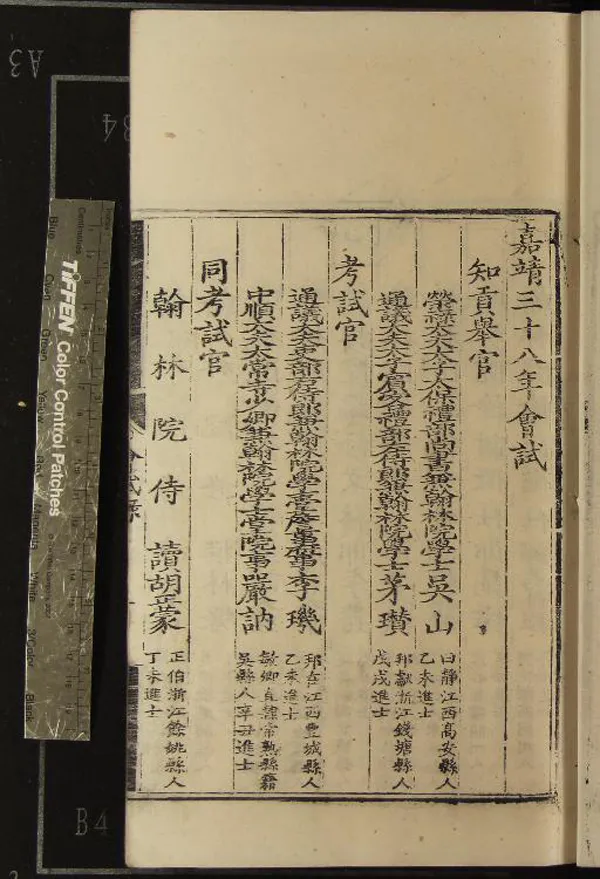 嘉靖三十八年會試
知貢舉官
榮祿大夫太子太保禮部尚書兼翰林院學士吳山
曰靜江西高安縣人
乙未進士
通議大夫太子賓客禮部左侍郎兼翰林院學士茅瓚
邦獻浙江錢塘縣人
戊戌進士
考試官
通議大夫吏部右侍郎兼翰林院學士掌詹事府事李璣
邦在江西豐城縣人
乙未進士
中順大夫太常寺少卿兼翰林院學士掌院事嚴訥
敏卿直隸常熟縣籍
吳縣人辛丑進士
同考試官
翰林院侍讀胡正蒙
正伯浙江餘姚縣人
丁未進士
會試錄
TIFFEN Color Control Patches
Blue
Green
Yellow
Red
Magenta
White
3/Color
Black
Centimetres
A3
B4
B4